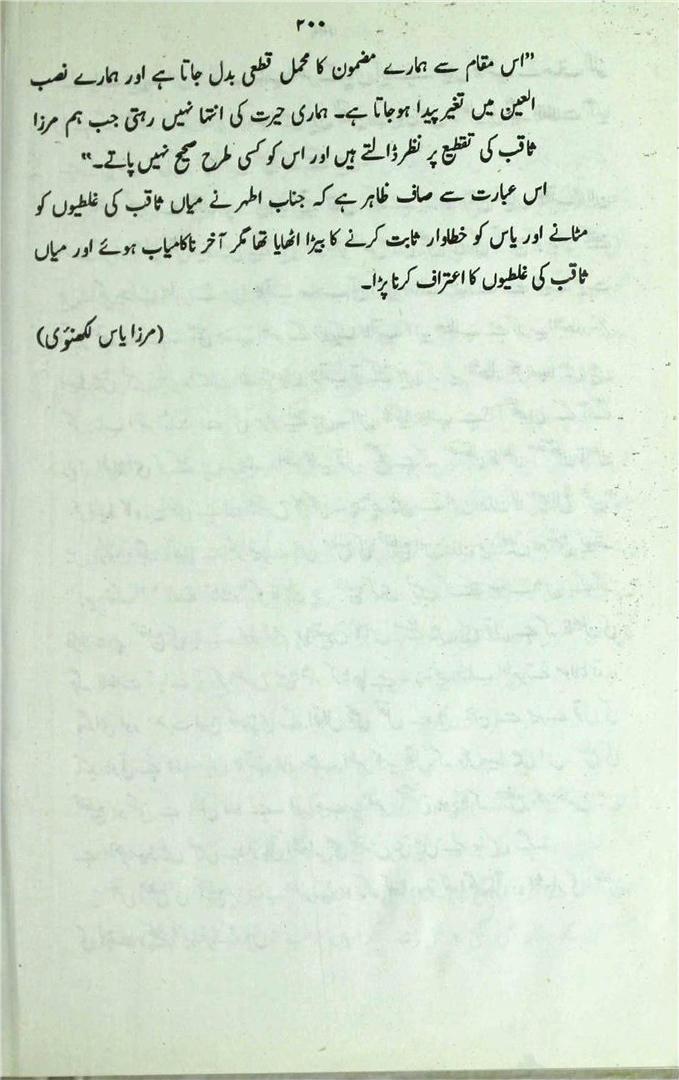 ۲۰۰
"اس مقام سے ہمارے مضمون کا محمل قطعی بدل جاتا ہے اور ہمارے نصب
العین میں تغیر پیدا ہوجاتا ہے۔ ہماری حیرت کی انتہا نہیں رہتی جب ہم مرزا
ثاقب کی تقطیع پر نظر ڈالتے ہیں اور اس کو کسی طرح صحیح نہیں پاتے۔"
اس عبارت سے صاف ظاہر ہے کہ جناب اطہر نے میاں ثاقب کی غلطیوں کو
مٹانے اور یاس کو خطاوار ثابت کرنے کا بیڑا اٹھایا تھا مگر آخر ناکامیاب ہوئے اور میاں
ثاقب کی غلطیوں کا اعتراف کرنا پڑا۔
(مرزا یاس لکھنؤی)